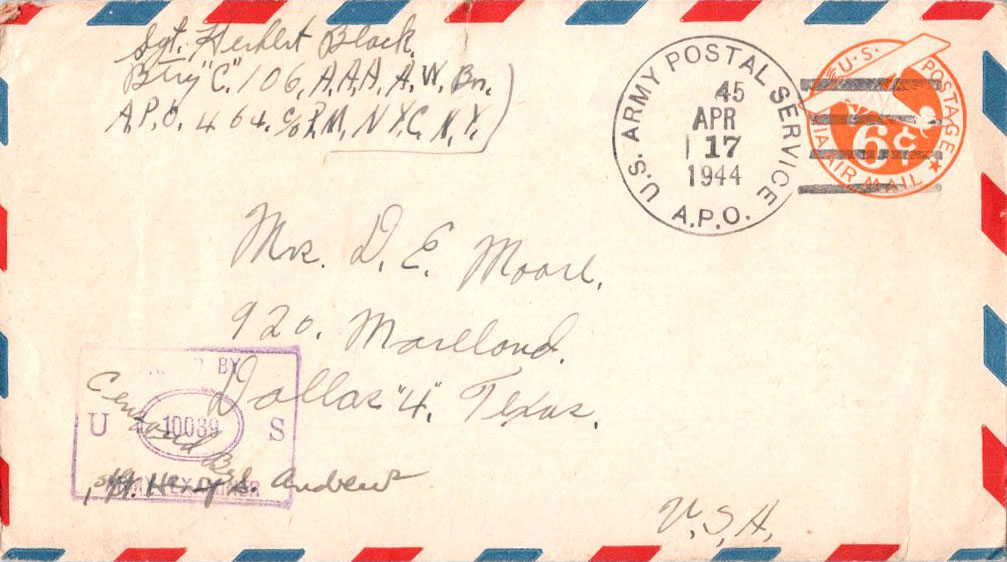 Sgt. Herbert Black.
Btry "C." 106, A.A.A. A.W. Bn.
A.P.O. 464. c/o P.M, N.Y.C. N.Y.
U.S. ARMY POSTAL SERVICE
45
APR
17
1944
A.P.O.
U.S. POSTAGE
6¢
VIA AIR MAIL
Mrs. D. E. Moore.
920. Moreland.
Dallas "4". Texas.
U.S.A.
BY
U 10039 S
Censored By
Andrews